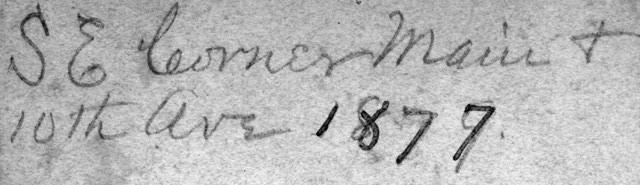 S E Corner Main +
10th Ave 1877.